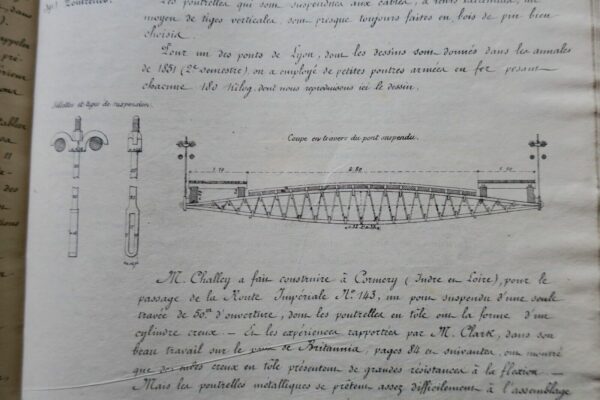 Les poutrelles qui sont suspendues aux câbles, à leurs extrémités, au
moyen de tiges verticales, sont presque toujours faites en bois de pin bien
choisis.
Pour un des ponts de Lyon, dont les dessins sont donnés dans les annales
de 1851 (2e semestre), on a employé de petites poutres armées en fer pesant
chacune 180 Kilog. dont nous reproduisons ici le dessin.
et tiges de suspension.
Coupe en travers du pont suspendu.
M. Challey a fait construire à Cormery (Indre et Loire), pour le
passage de la Route Impériale No. 143, un pont suspendu d'une seule
travée de 50m d'ouverture, dont les poutrelles en tôle ont la forme d'un
cylindre creux. — Et les expériences rapportées par M. Clark, dans son
beau travail sur le pont de Britannia, pages 84 et suivantes, ont montré
que des tubes creux en tôle présentent de grandes résistances à la flexion. —
Mais les poutrelles métalliques se prêtent assez difficilement à l'assemblage